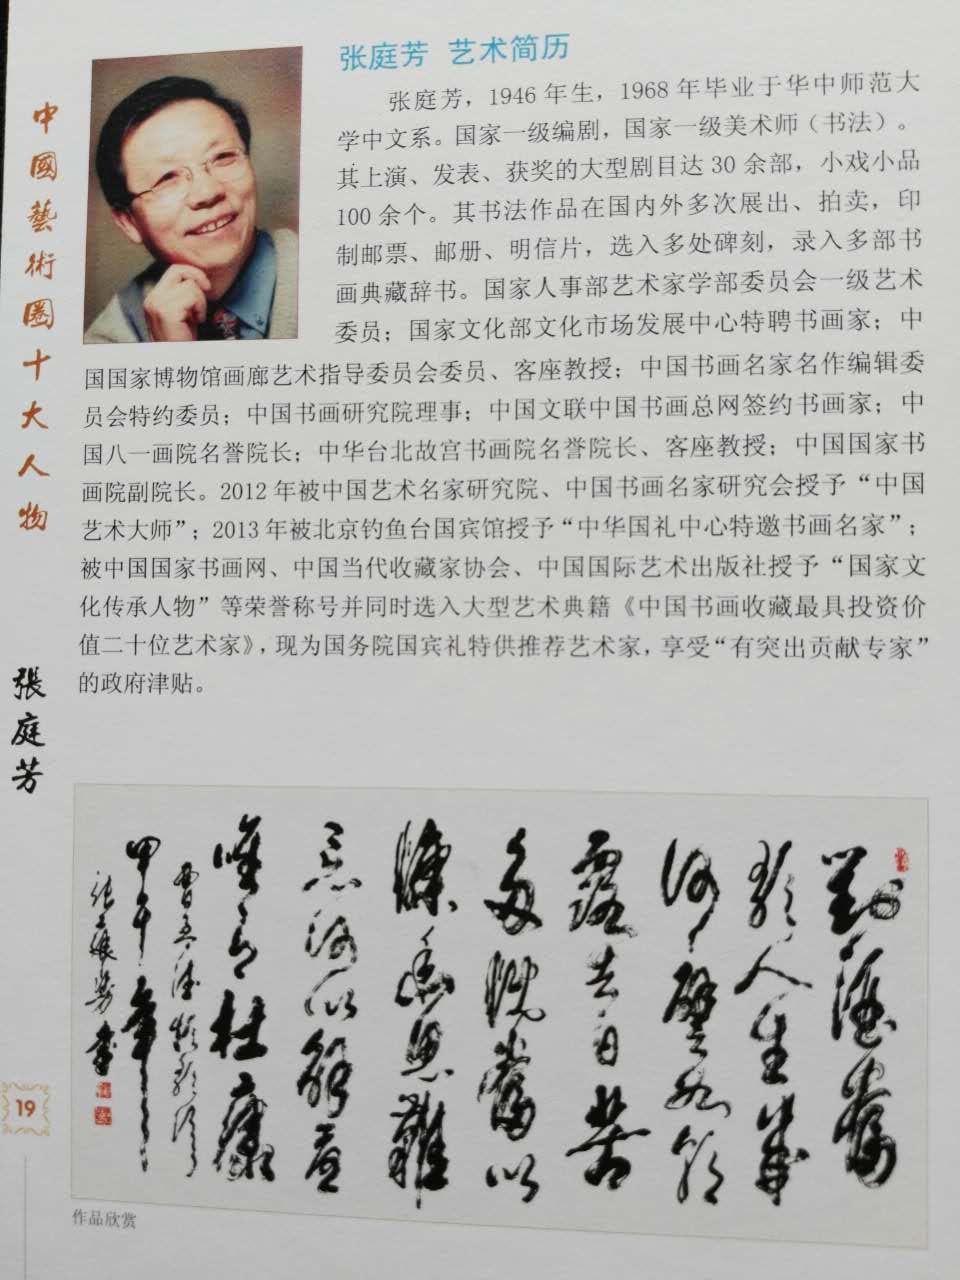 中國藝術圈十大人物
張庭芳
张庭芳 艺术简历
张庭芳，1946 年生，1968 年毕业于华中师范大
学中文系。国家一级编剧，国家一级美术师（书法）。
其上演、发表、获奖的大型剧目达 30 余部，小戏小品
100 余个。其书法作品在国内外多次展出、拍卖，印
制邮票、邮册、明信片，选入多处碑刻，录入多部书
画典藏辞书。国家人事部艺术家学部委员会一级艺术
委员；国家文化部文化市场发展中心特聘书画家；中
国国家博物馆画廊艺术指导委员会委员、客座教授；中国书画名家名作编辑委
员会特约委员；中国书画研究院理事；中国文联中国书画总网签约书画家；中
国八一画院名誉院长；中华台北故宫书画院名誉院长、客座教授；中国国家书
画院副院长。2012 年被中国艺术名家研究院、中国书画名家研究会授予“中国
艺术大师”；2013 年被北京钓鱼台国宾馆授予“中华国礼中心特邀书画名家”；
被中国国家书画网、中国当代收藏家协会、中国国际艺术出版社授予“国家文
化传承人物”等荣誉称号并同时选入大型艺术典籍《中国书画收藏最具投资价
值二十位艺术家》，现为国务院国宾礼特供推荐艺术家，享受“有突出贡献专家”
的政府津贴。
對酒當
歌人生幾
何譬如朝
露去日苦
多慨當以
慷幽思難
忘何以解憂
唯有杜康
曹孟德短歌行
甲午年
張庭芳書
作品欣赏
19